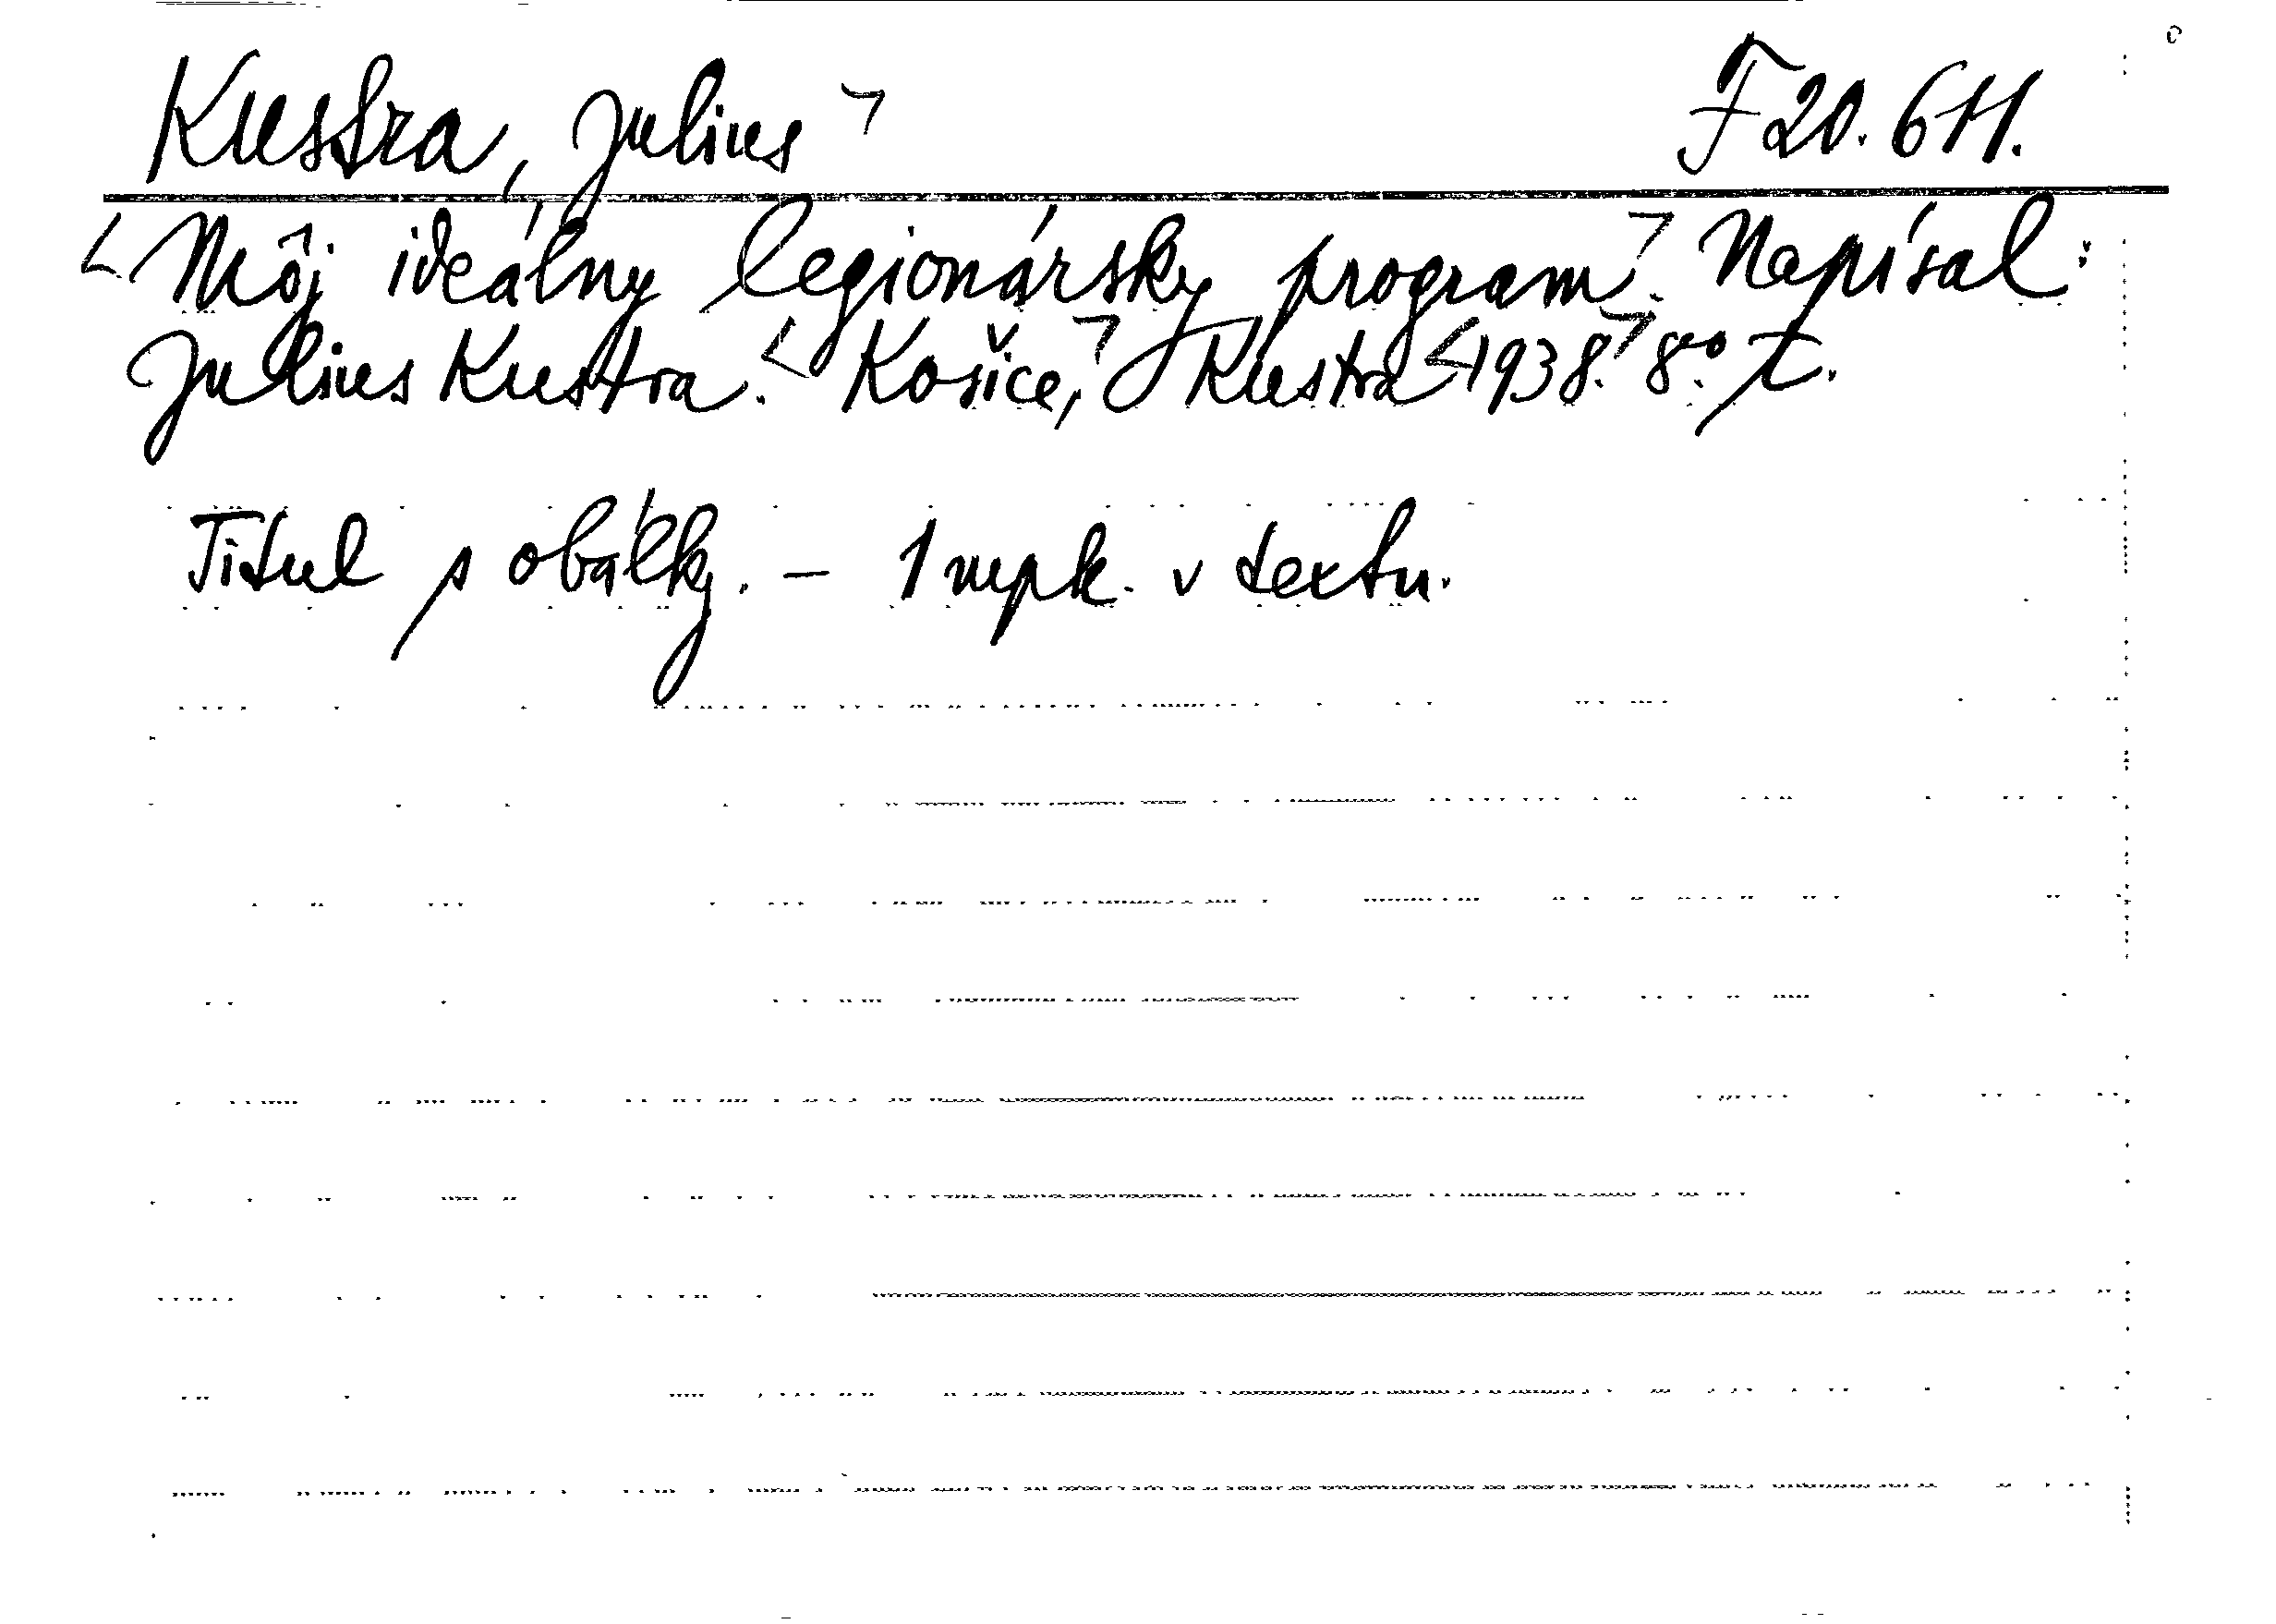 Kustra, Julius ┐ F 20.611.
└ Môj ideálny legionársky program ┐. Napísal:
Julius Kustra. └ Košice, ┐ J Kustra └ 1938. ┐ 8° T.
Titul s obálky. — 1 nepk. v textu.